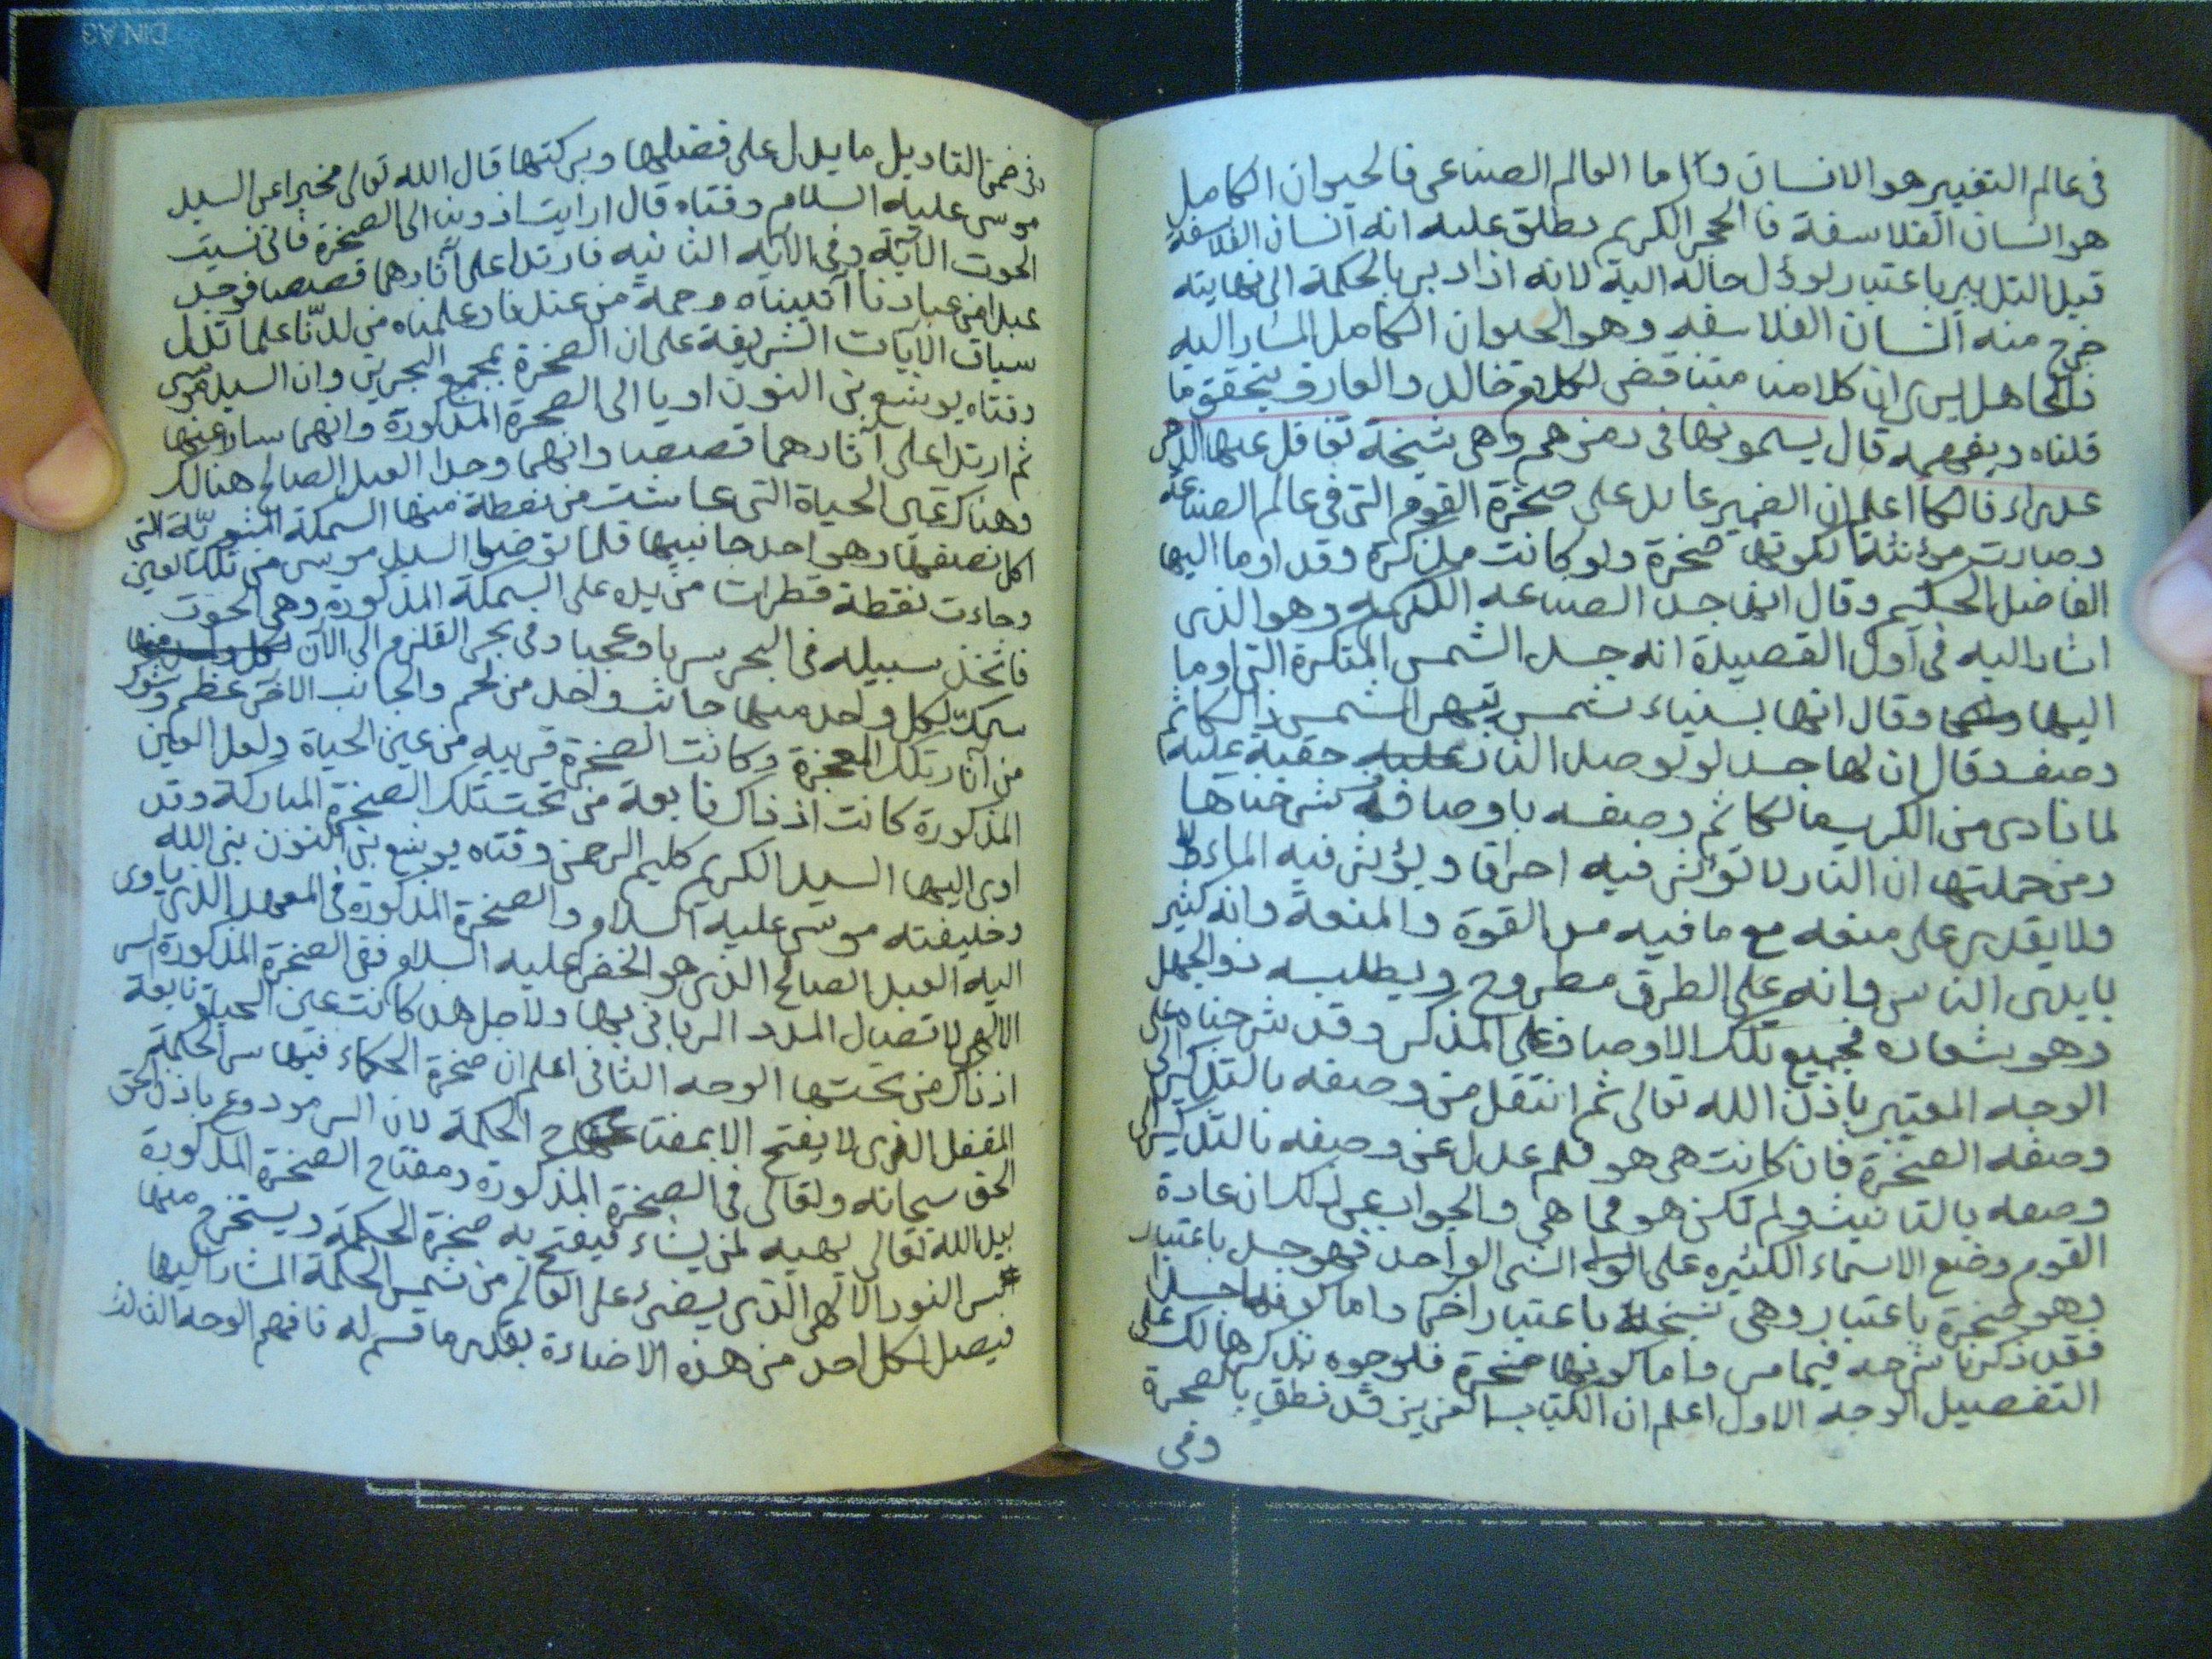 في عالم التغيير هو الانسان واما العالم الصناعي فالحيوان الكامل
هو انسان الفلاسفة فالحجر الكريم يطلق عليه انه انسان الفلاسفة
قبل التدبير باعتبار لوؤل حاله اليه لانه اذا دبر بالحكمة الى نهايته
خرج منه انسان الفلاسفه وهو الحيوان الكامل المشار اليه
فالجاهل يرى ان كلامنا متناقض لكلام خالد والعارف يتحقق ما
قلناه ويفهمه قال يسمونها في رمزهم وهي شيخة تغافل عنها الدهر
عذراء فالكا اعلم ان الضمير عايد على صخرة القوم التي في عالم الصناعه
وصارت مؤنثة لكونها صخرة ولو كانت مذكرة وقد اوما اليها
الفاضل الحكيم وقال انها جسد الصناعه الكريمه وهو الذي
اشار اليه في اول القصيدة انه جسد الشمس المتكسرة التي اوما
اليها وقال انها بسنياء شمس تبهر الشمس ذالكا ثم
وصفه وقال ان لها جسد لو توصل النار حقبة عليه
لما نادى من الكرب مالكا ثم وصفه باوصافه شرحناها
ومن جملتها ان النار لا تؤثر فيه احراقا ويؤثر فيه الماء
فلا يقدر على منعه مع ما فيه من القوة والمنعة وانه كثير
بايدي الناس وانه على الطرق مطروح ويطلبه ذو الجهل
وهو بشعاره فجميع تلك الاوصاف على المذكر وقد شرحناه على
الوجه المعتبر باذن الله تعالى ثم انتقل من وصفه بالتذكير الى
وصفه الصخرة فان كانت هي هو فلم عدل عن وصفه بالتذكير الى
وصفه بالتانيث ولم تكن هو فما هي والجواب عن ذلك ان عادة
القوم وضع الاسماء الكثيره على الشي الواحد فهو جسد باعتبار
وهو صخرة باعتبار وهي شيخة باعتبار اخر واما كونها جسدا
فقد ذكرنا شرحه فيما مر واما كونها صخرة فلوجوه نذكرها لك على
التفصيل الوجه الاول اعلم ان الكتاب العزيز قد نطق بالصخرة
وفي
وفي ضمن التاويل ما يدل على فضلها وبركتها قال الله تعالى مخبرا عن السيد
موسى عليه السلام وفتاه قال ارايت اذ اوينا الى الصخرة فاني نسيت
الحوت الآية وفي الآيه الثانيه فارتدا على آثارهما قصصا فوجدا
عبدا من عبادنا آتيناه رحمة من عندنا وعلمناه من لدنا علما تدل
سياق الايات الشريفة على ان الصخرة بمجمع البحرين وان السيد موسى
وفتاه يوشع بن النون اويا الى الصخرة المذكورة وانهما سارا عنها
ثم ارتدا على آثارهما قصصا وانهما وجدا العبد الصالح هنالك
وهناك عين الحياة التي عاشت من نقطة منها السمكة المشوية التي
اكل نصفها وهو احد جانبيها فلما توضا السيد موسى من تلك العين
وجاءت نقطة قطرات من يده على السمكة المذكورة وهي الحوت
فاتخذ سبيله في البحر سربا وعجبا وفي بحر القلزم الى الآن
سمك لكل واحد منها جانب واحد من لحم والجانب الاخر عظم وشوك
من آثار تلك المعجزة وكانت الصخرة قريبه من عين الحياة ولعل العين
المذكورة كانت اذ ذاك نابعة من تحت تلك الصخرة المباركة وقد
اوى اليها السيد الكريم كليم الرحمن وفتاه يوشع بن النون نبي الله
وخليفته موسى عليه السلام والصخرة المذكورة في المعهد الذي ياوى
اليه العبد الصالح الذي هو الخضر عليه السلام ففي الصخرة المذكورة السر
الالهي لاتصال المدد الرباني بها ولاجل هذا كانت عين الحياة نابعة
اذ ذاك من تحتها الوجه الثاني اعلم ان صخرة الحكماء فيها سر الحكمة
المقفل الذي لا يفتح الا بمفتاح الحكمة لان السر مودوع باذن الحق
الحق سبحانه وتعالى في الصخرة المذكورة ومفتاح الصخرة المذكورة
بيد الله تعالى يهبه لمن يشاء فيفتح به صخرة الحكمة ويستخرج منها
سر النور الالهي الذي يضيء على العالم من شمس الحكمة المشار اليها
فيصل لكل احد من هذه الاضاءة بقدر ما قسم له فافهم الوجه الثالث